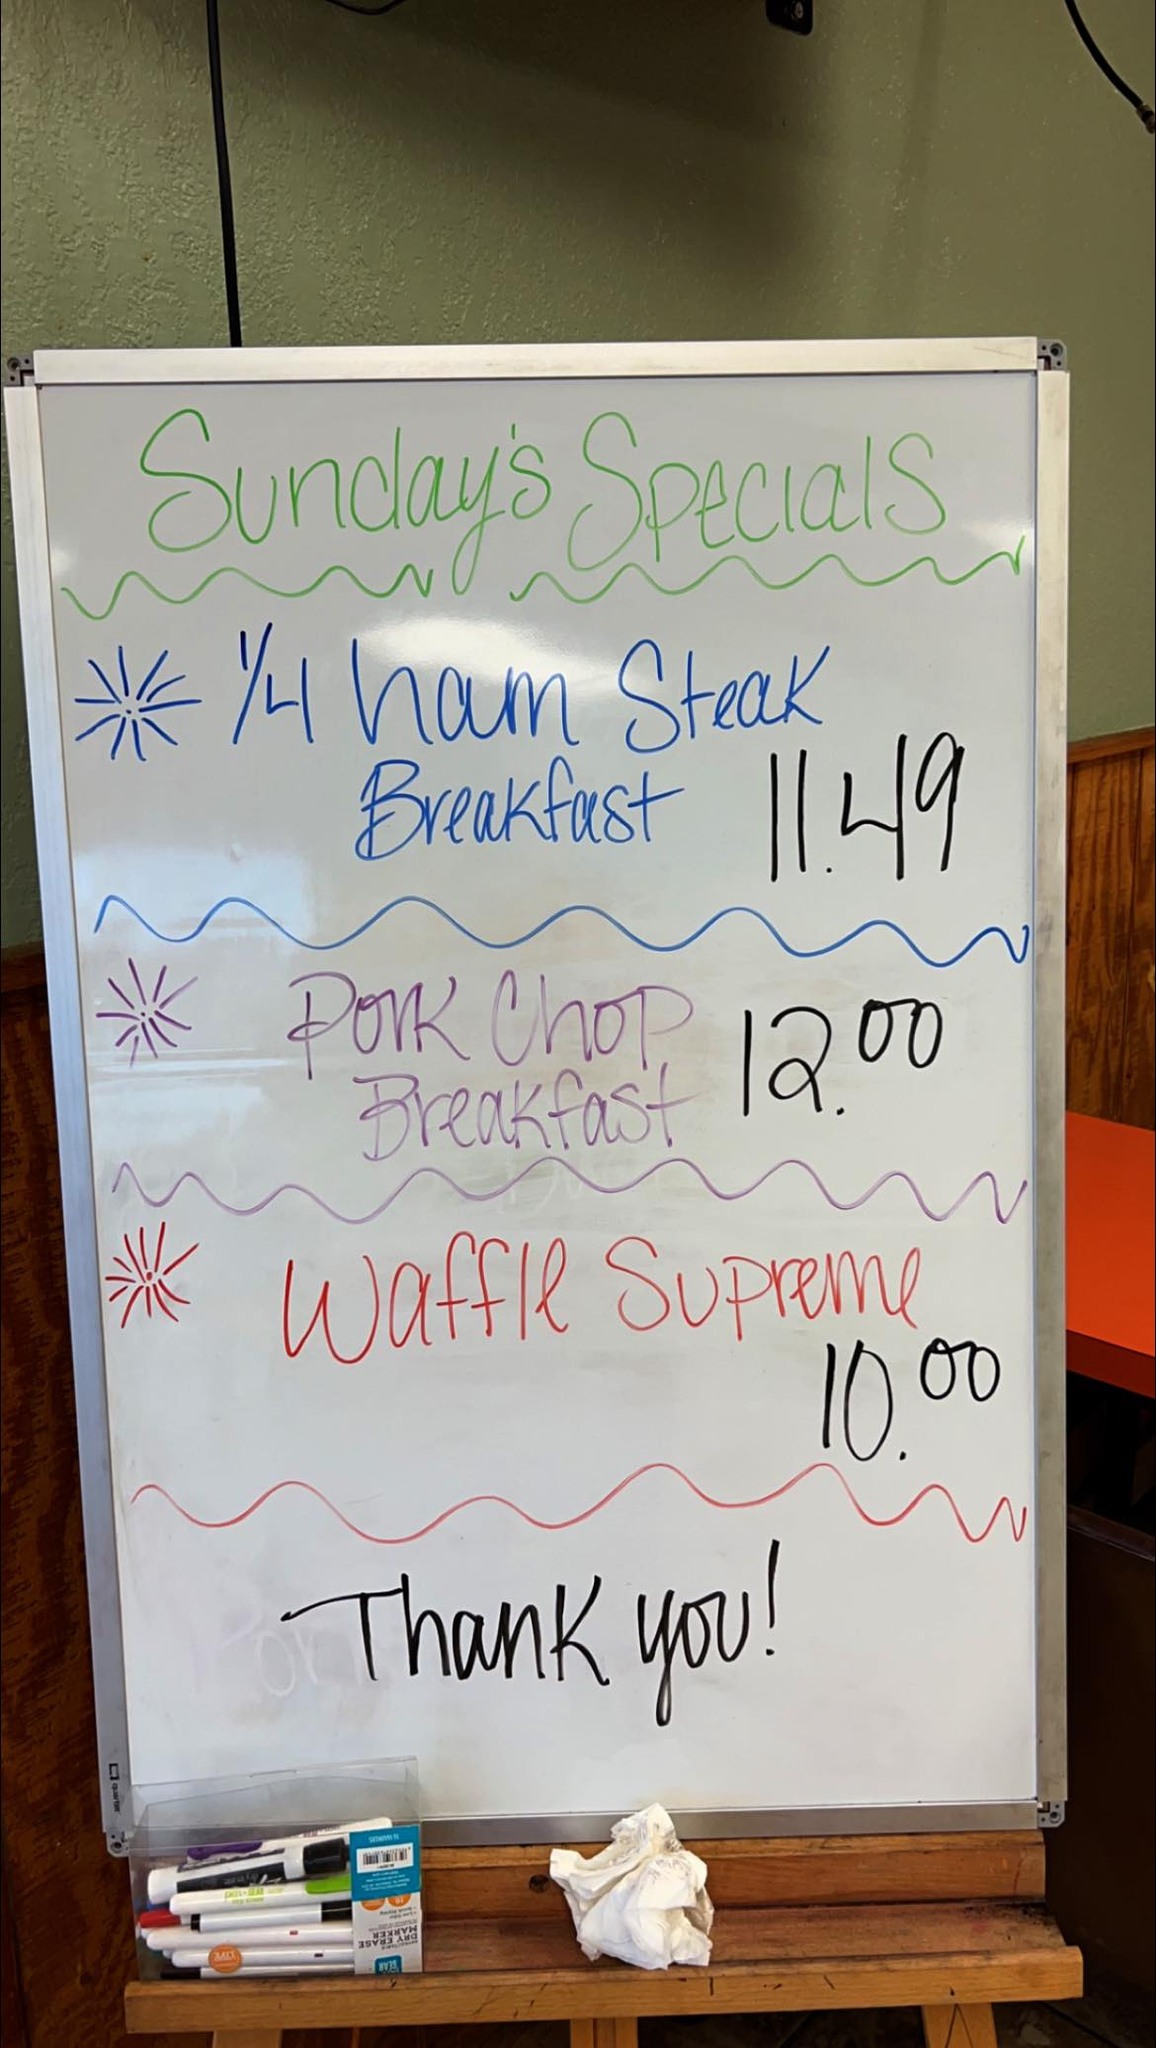 Sunday's Specials
1/4 ham Steak
Breakfast 11.49
Pork Chop 12.00
Breakfast
Waffle Supreme
10.00
Thank you!
quartet
10 MARKERS
DRY ERASE
MARKER